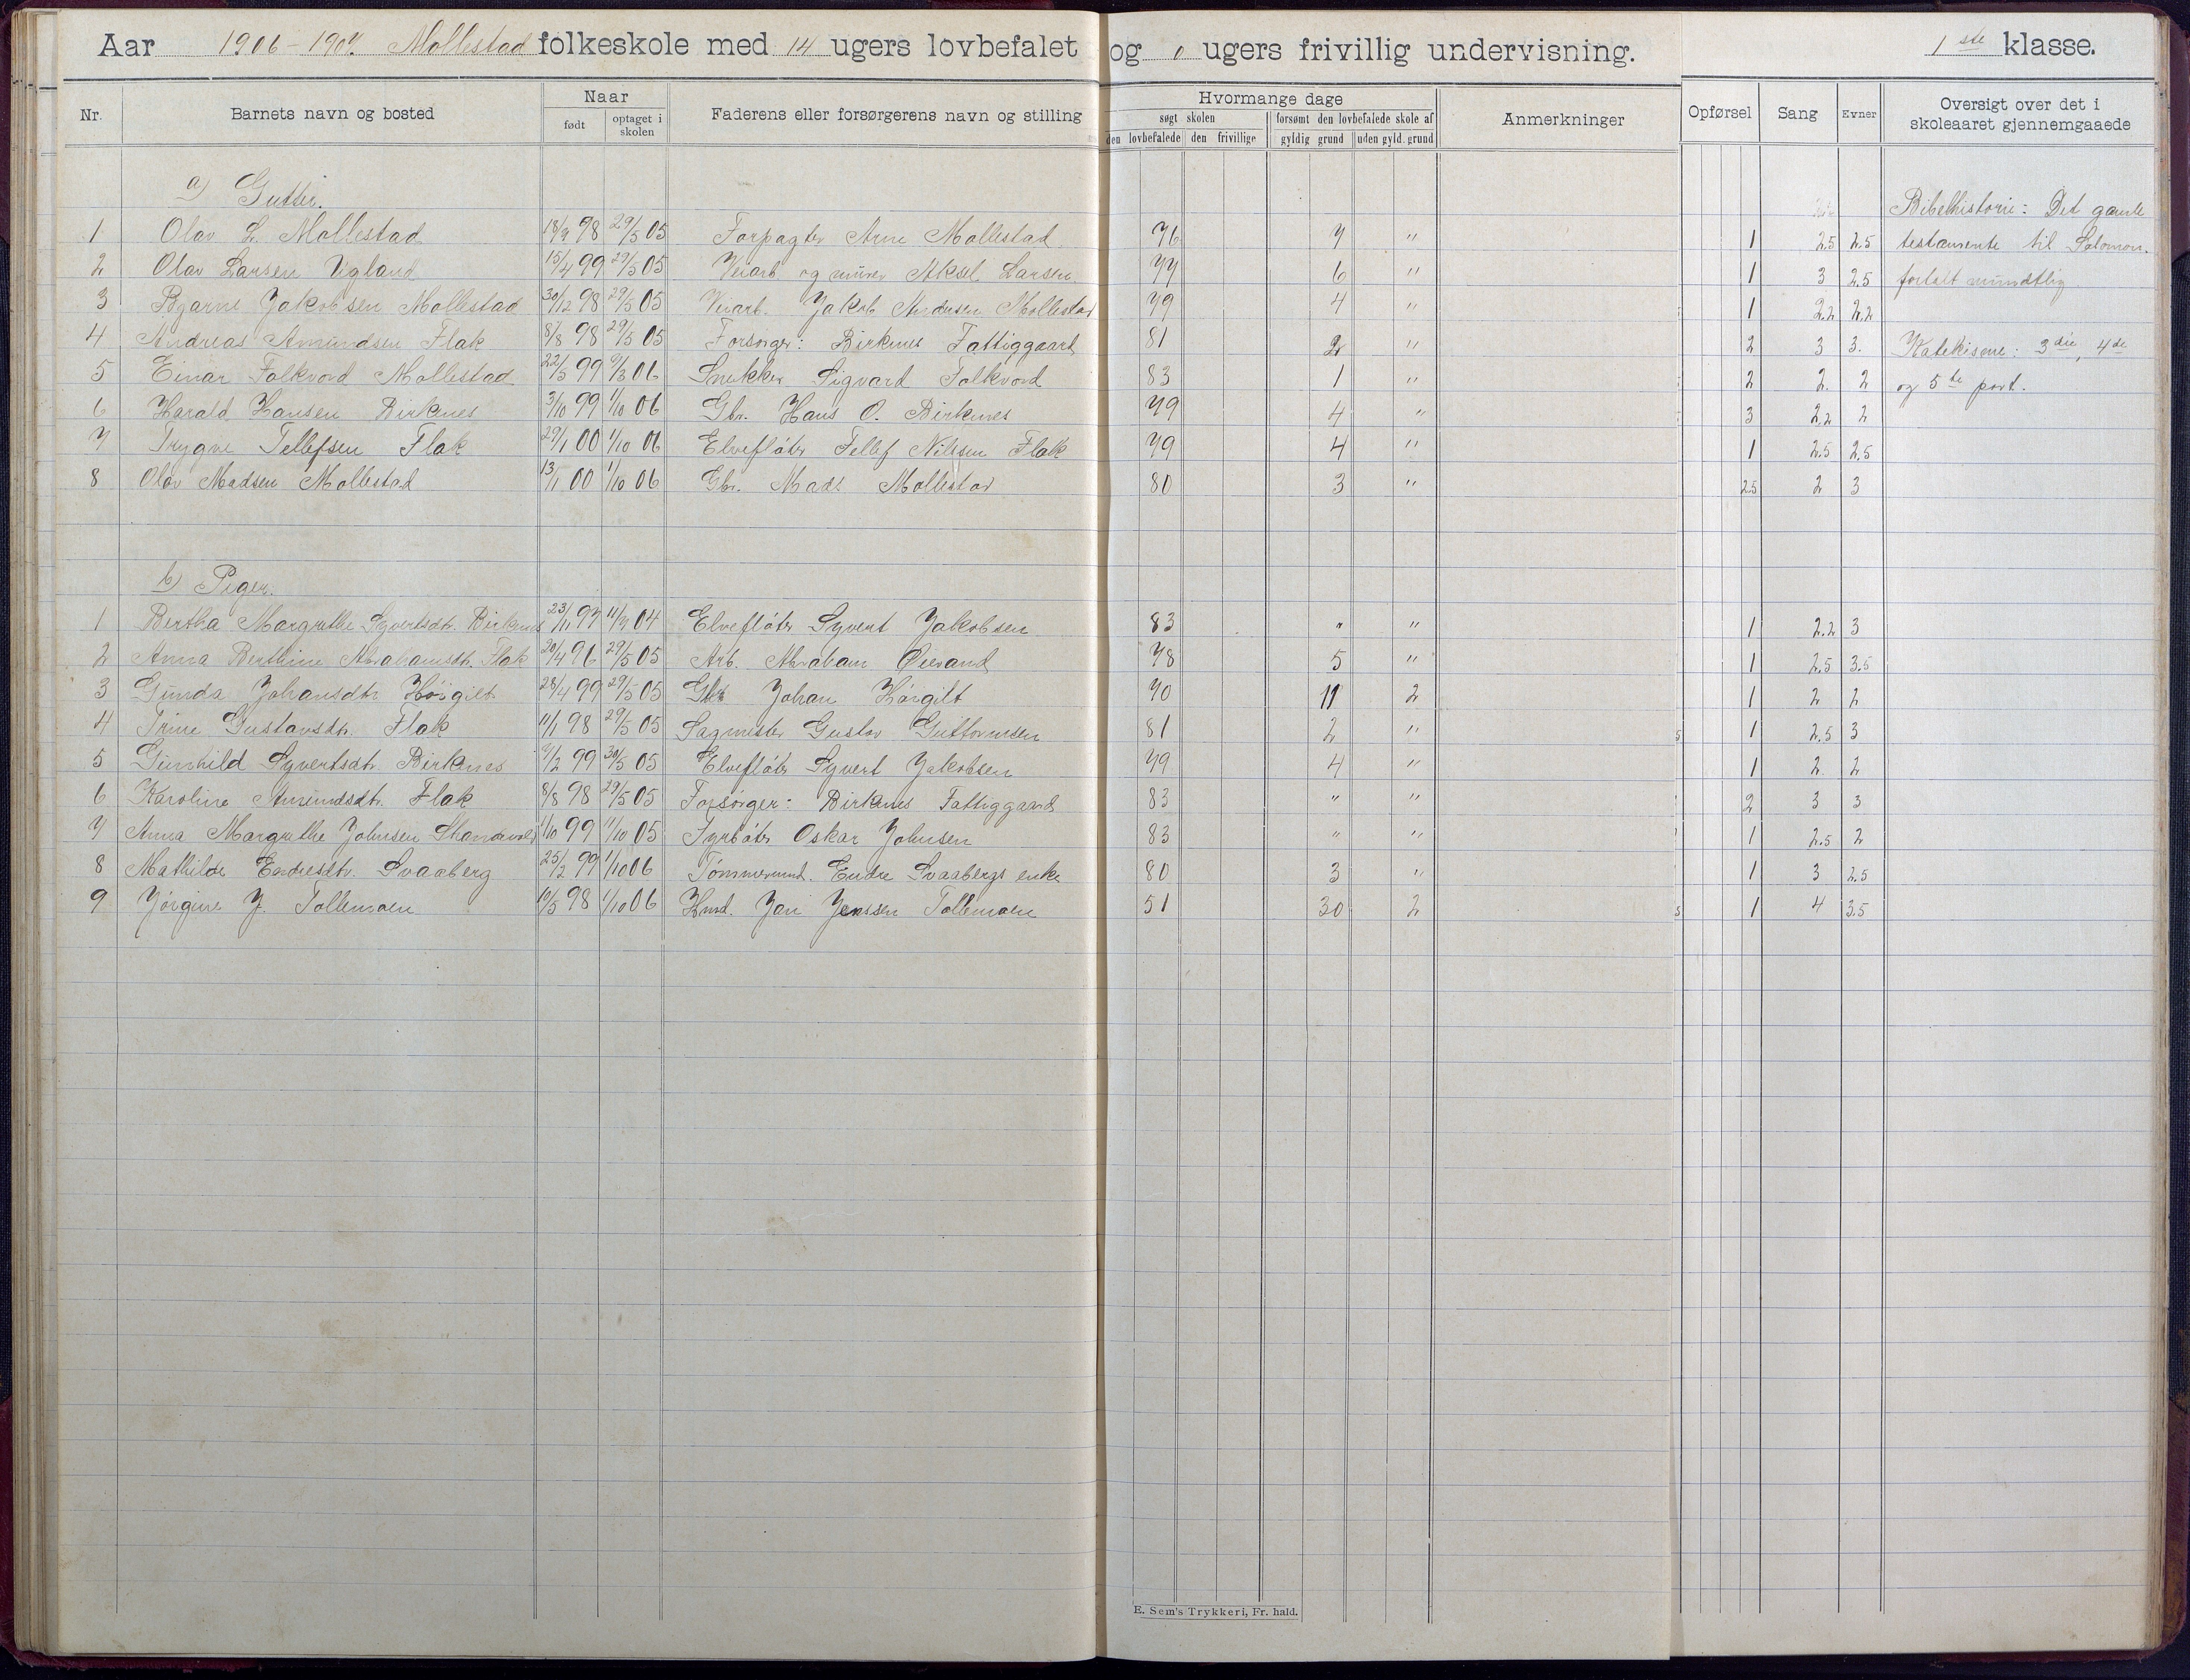 Aar 1906-1907 Mollestad folkeskole med 14 ugers lovbefalet og 0 ugers frivillig undervisning. 1ste klasse.
Nr. Barnets navn og bosted Naar født optaget i skolen Faderens eller forsørgerens navn og stilling Hvormange dage søgt skolen den lovbefalede den frivillige forsømt den lovbefalede skole af gyldig grund uden gyld. grund Anmerkninger Opførsel Sang Evner Oversigt over det i skoleaaret gjennemgaaede
a) Gutter. Bibelhistorie: Det gamle
1 Olav L. Mollestad 18/9 98 29/5 05 Forpagter Arne Mollestad 76 7 " 1 2.5 2.5 testamente til Salomon.
2 Olav Larsen Vigland 15/4 99 29/5 05 Veiarb og murer Aksel Larsen 77 6 " 1 3 2.5 fortalt mundtlig
3 Bjarne Jakobsen Mollestad 30/12 98 29/5 05 Veiarb. Jakob Andersen Mollestad 79 4 " 1 2.2 2.2
4 Andreas Amundsen Flak 8/8 98 29/5 05 Forsørger: Birkenes Fattiggaard 81 2 " 2 3 3. Katekisme: 3die, 4de
5 Einar Folkvord Mollestad 22/5 99 9/3 06 Snekker Sigvard Folkvord 83 1 " 2 2. 2 og 5te part.
6 Harald Hansen Birkenes 3/10 99 1/10 06 Gbr. Hans O. Birkenes 79 4 " 3 2.2 2
7 Trygve Tellefsen Flak 29/1 00 1/10 06 Elvefløter Tellef Nilsen Flak 79 4 " 1 2.5 2.5
8 Olav Madsen Mollestad 13/1 00 1/10 06 Gbr. Mads Mollestad 80 3 " 2.5 2 3
b) Piger.
1 Bertha Margrethe Syvertsdtr. Birkenes 23/11 97 11/7 04 Elvefløter Syvert Jakobsen 83 " " 1 2.2 3
2 Anna Berthine Abrahamsdtr. Flak 20/4 96 29/5 05 Arb. Abraham Øievand 78 5 " 1 2.5 3.5
3 Gunda Johansdtr Høigilt 28/4 99 29/5 05 Gbr Johan Høigilt 70 11 2 1 2 2
4 Trine Gustavsdtr. Flak 11/1 98 29/5 05 Sagmester Gustav Guttormsen 81 2 " 1 2.5 3
5 Gunhild Syvertsdtr. Birkenes 7/2 99 30/5 05 Elvefløter Syvert Jakobsen 79 4 " 1 2. 2
6 Karoline Amundsdtr. Flak 8/8 98 29/5 05 Forsørger: Birkenes Fattiggaard 83 " " 2 3 3
7 Anna Margrethe Johnsen 1/10 99 11/10 05 Fyrbøter Oskar Johnsen 83 " " 1 2.5 2
8 Mathilde Endresdtr. Svaaberg 25/2 99 1/10 06 Tømmermd. Endre Svaabergs enke 80 3 " 1 3 2.5
9 Jørgine J. Tollemoen 10/5 98 1/10 06 Hmd. Jan Jenssen Tollemoen 51 30 2 1 4 3.5
E. Sem's Trykkeri, Fr. hald.